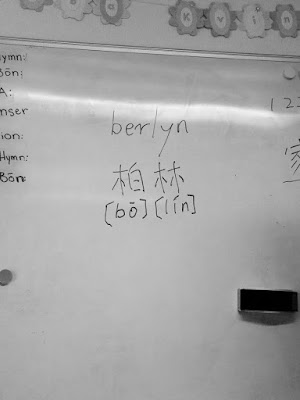 K v i n
ymn:
Bön:
A:
nser
ion:
Hymn:
Bön:
berlyn
柏林
[bō][lín]
12
家